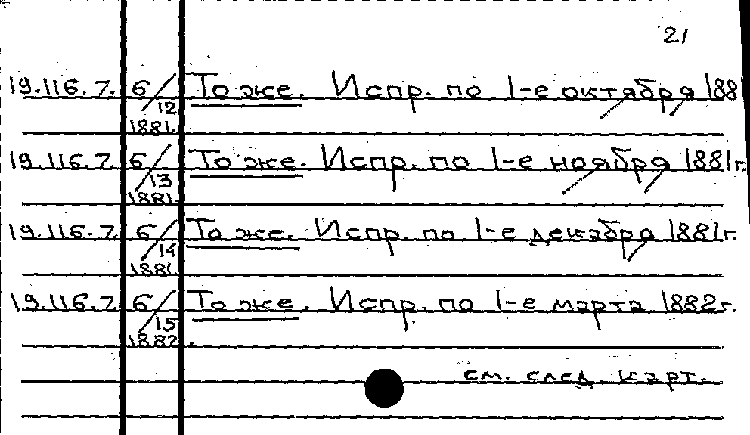 21
19.116.7. 6/12 То же. Испр. по 1-е октября 188
1881.
19.116.7 6/13 То же. Испр. по 1-е ноября 1881г.
1881.
19.116.7. 6/14 То же. Испр. по 1-е декабря 1881г.
1881.
19.116.7 6/15 То же. Испр. по 1-е марта 1882г.
1882.
см. след. карт.